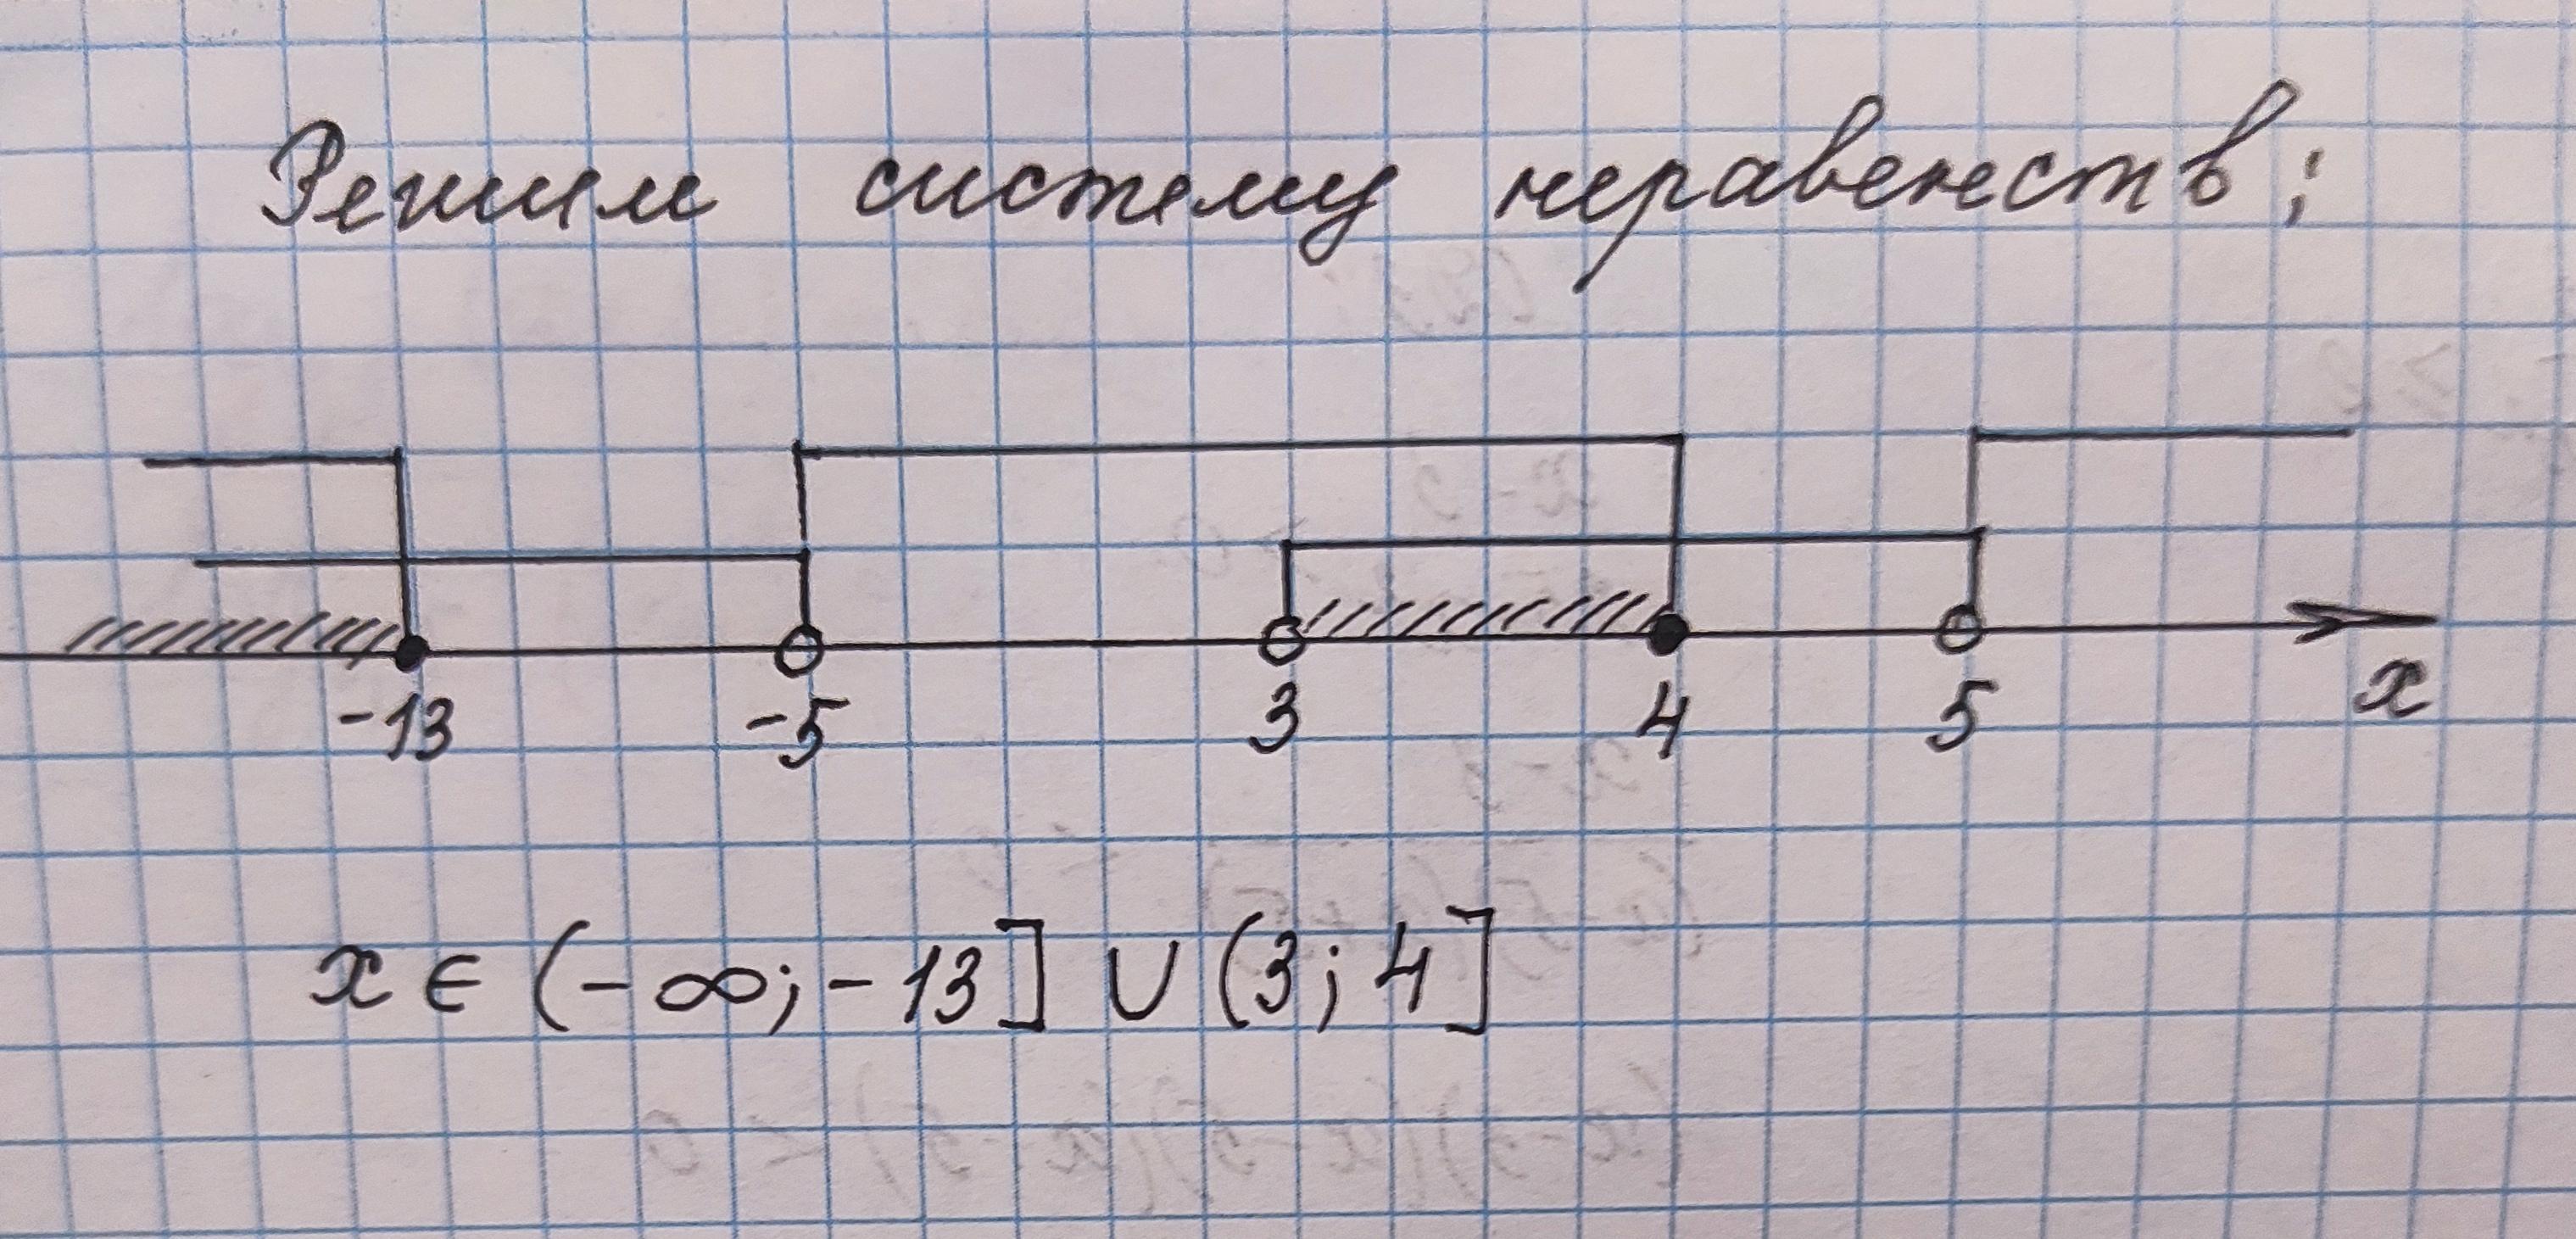 Решим систему неравенств:
-13 -5 3 4 5 x
x ∈ (-∞; -13] ∪ (3; 4]